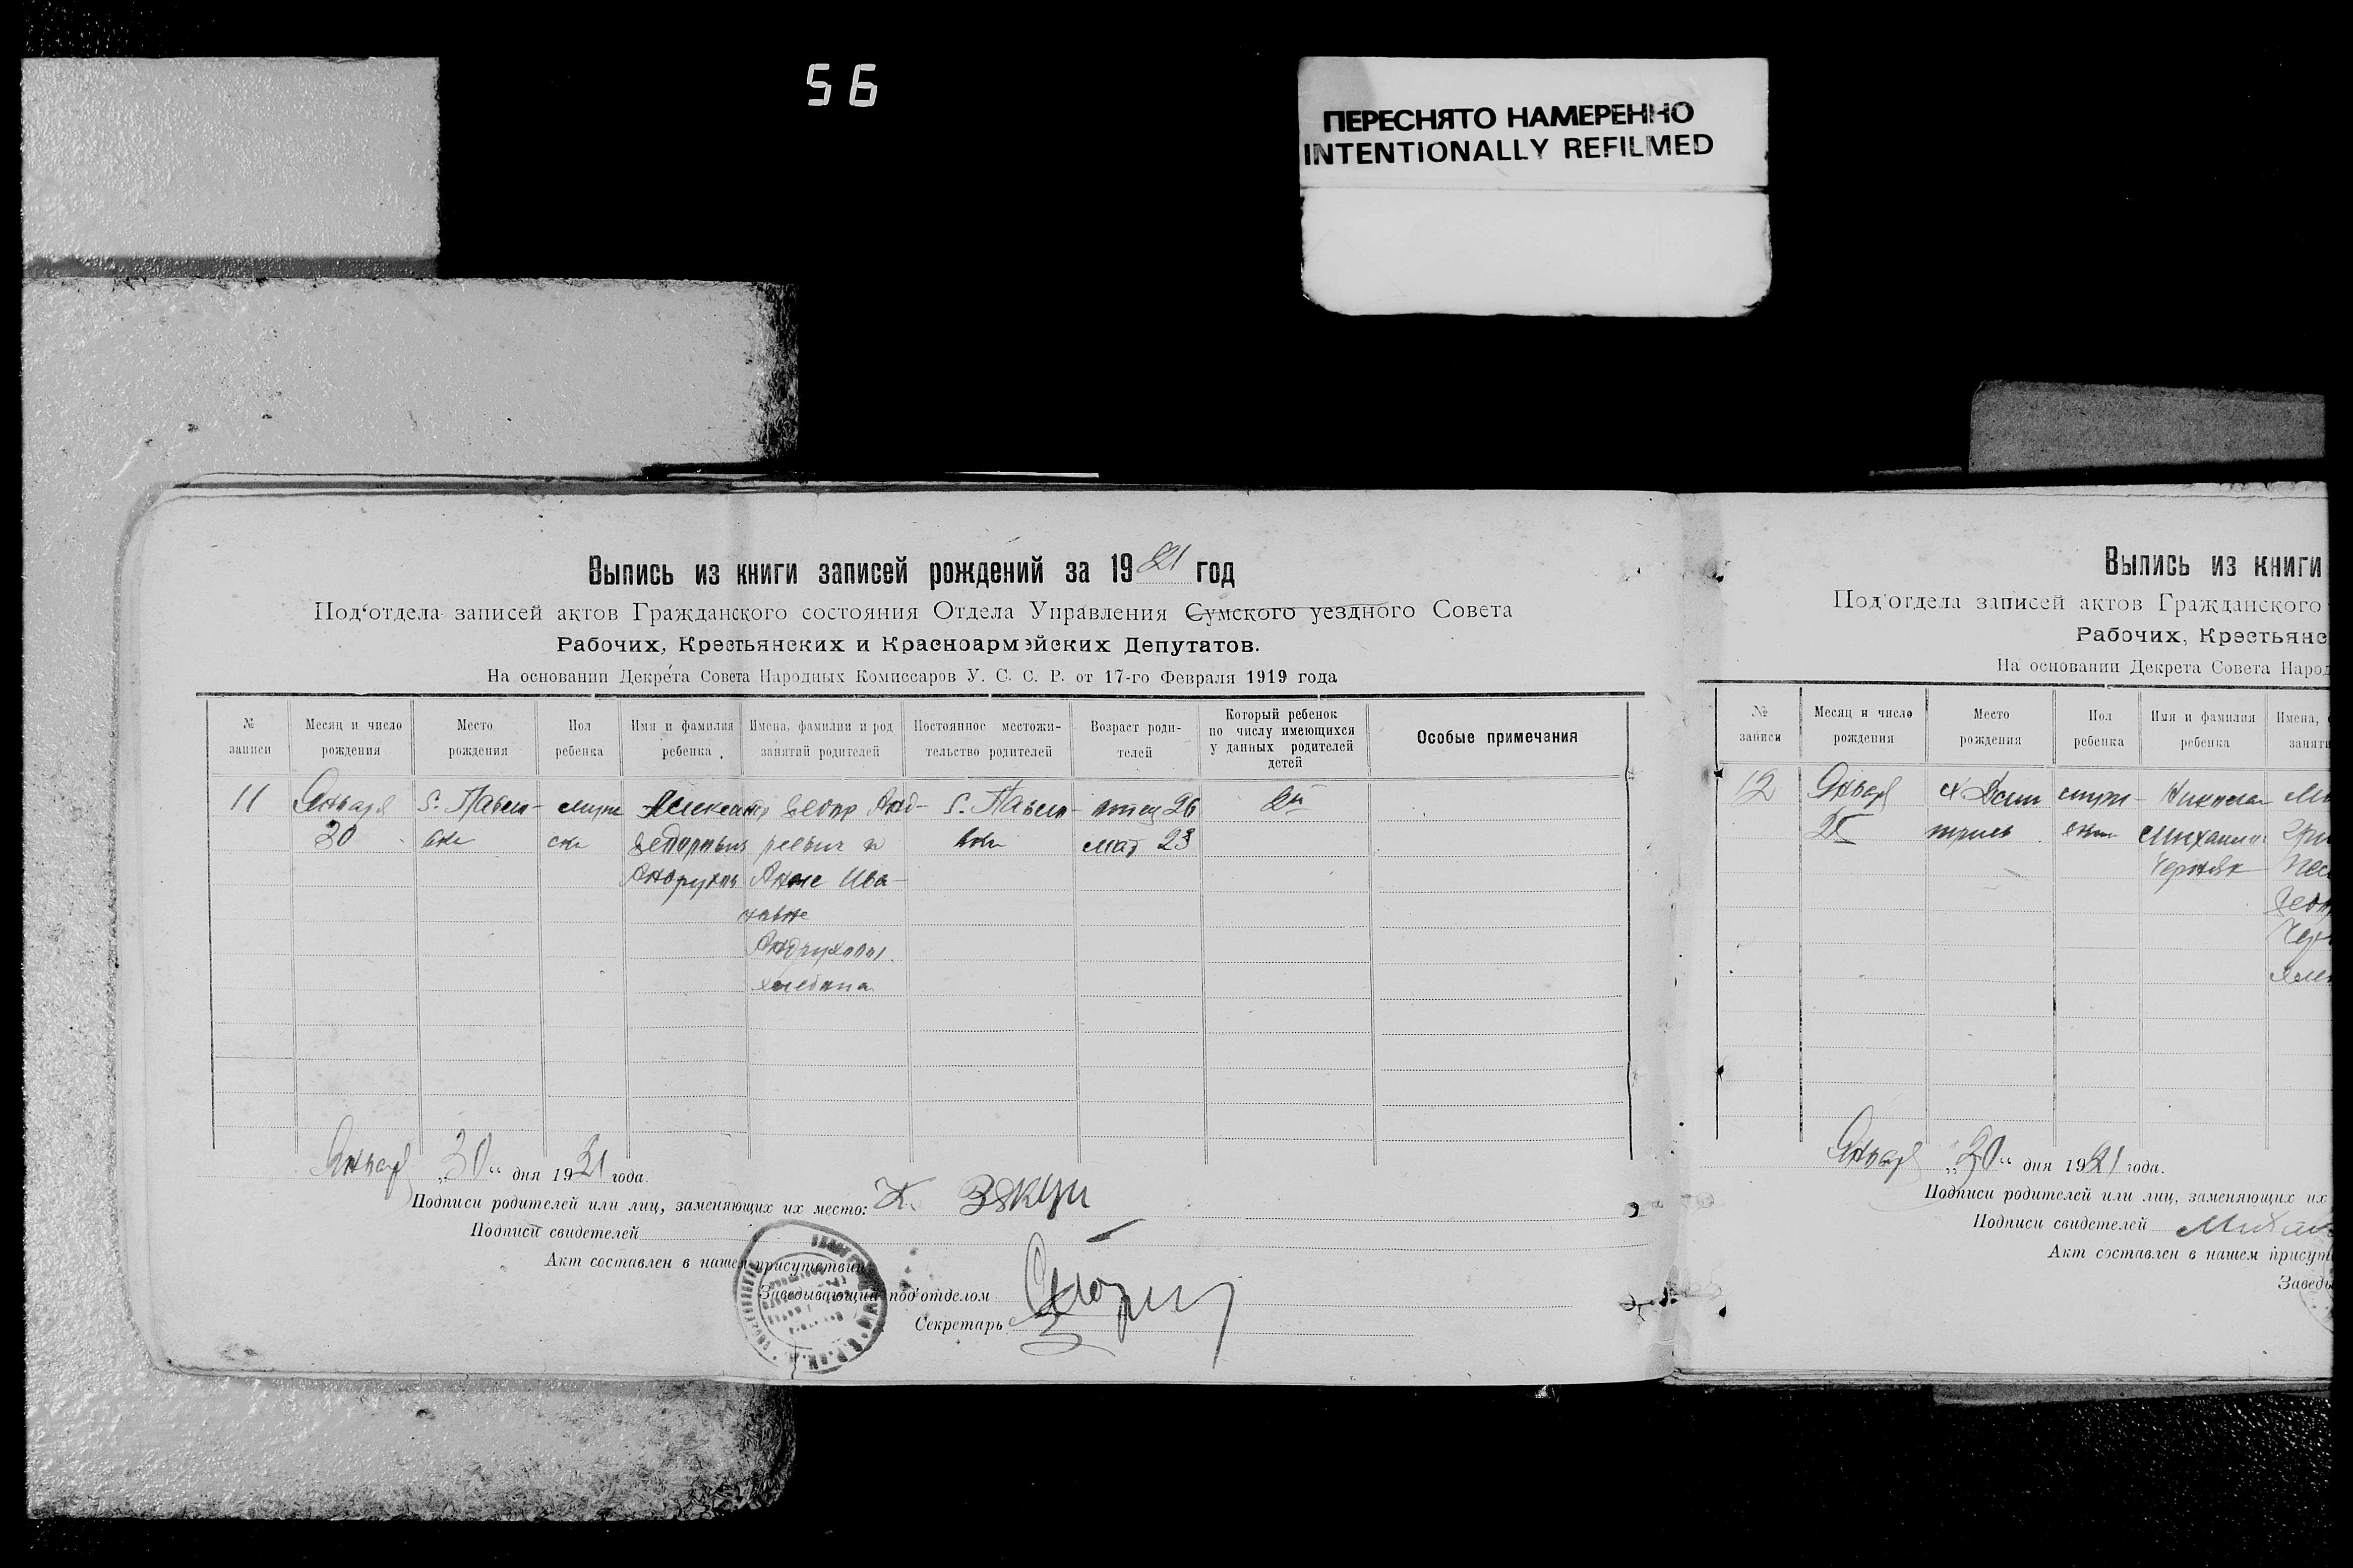 56
ПЕРЕСНЯТО НАМЕРЕННО
INTENTIONALLY REFILMED
Выпись из книги записей рождений за 1921 год
Под'отдела записей актов Гражданского состояния Отдела Управления Сумского уездного Совета
Рабочих, Крестьянских и Красноармейских Депутатов.
На основании Декрета Совета Народных Комиссаров У. С. С. Р. от 17-го Февраля 1919 года
№ записи
Месяц и число рождения
Место рождения
Пол ребенка
Имя и фамилия ребенка
Имена, фамилии и род занятий родителей
Постоянное местожи-
тельство родителей
Возраст роди-
телей
Который ребенок
по числу имеющихся
у данных родителей
детей
Особые примечания
11
Января
30
с. Павлов-
ки
мужс
ско
Александр
Федоров
Андрухов
Федор Анд-
реевич и
Анна Ива-
новна
Андруховы
с. Павлов-
ки
отец 26
мат 23
Январ „30“ дня 1921 года.
Подписи родителей или лиц, заменяющих их место:
Подписи свидетелей
Акт составлен в нашем присутствии:
Заведывающий под'отделом
Секретарь
Выпись из книги
Под'отдела записей актов Гражданского
Рабочих, Крестьянс
На основании Декрета Совета Народ
№ записи
Месяц и число рождения
Место рождения
Пол ребенка
Имя и фамилия ребенка
Имена,
заняти
12
Январ
Николай
Михайлов
Черняк
Январ „30“ дня 1921 года.
Подписи родителей или лиц, заменяющих их
Подписи свидетелей
Акт составлен в нашем присут
Заведы